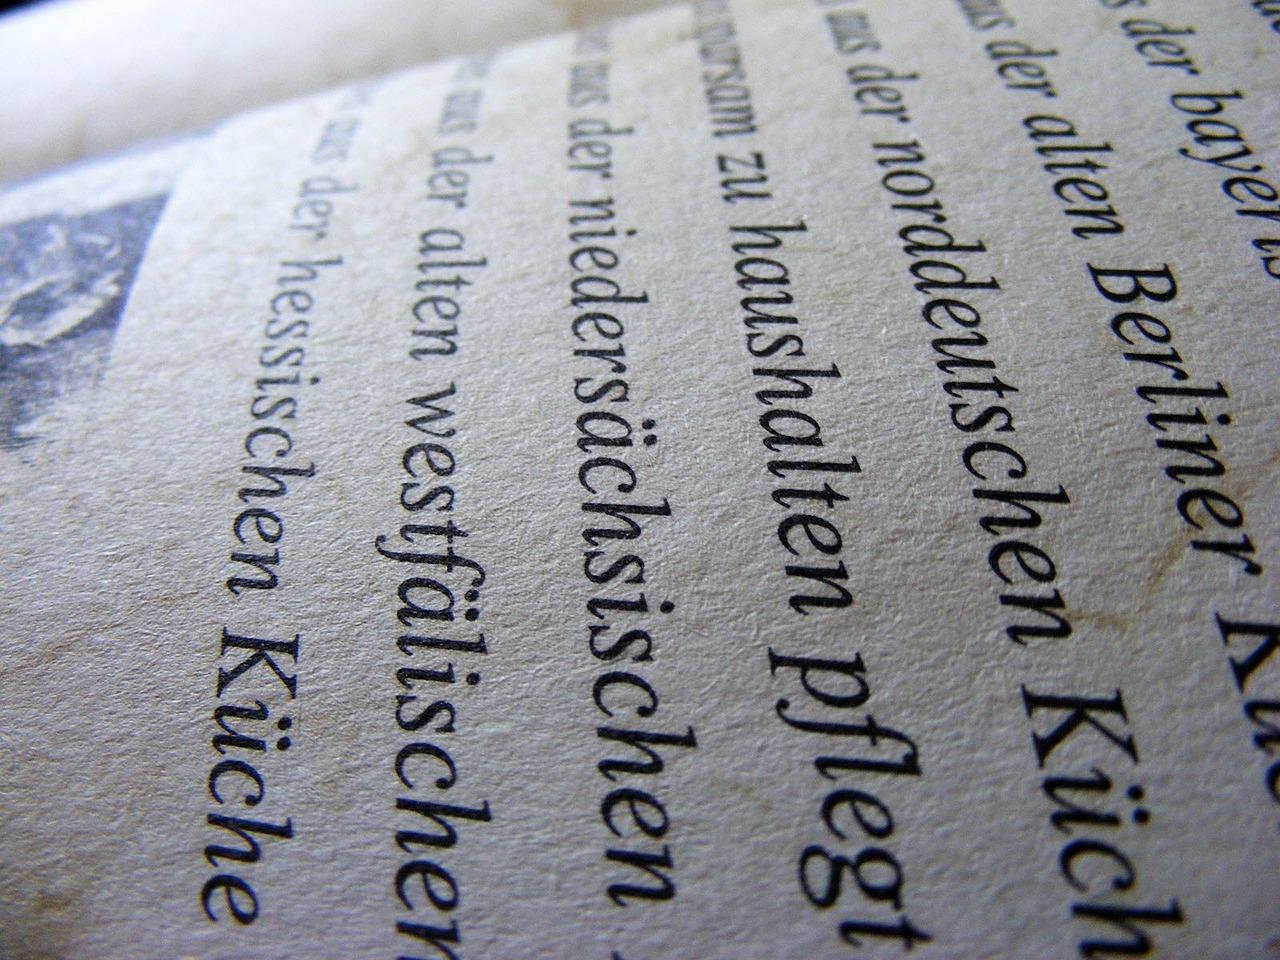 der bayeris
aus der alten Berliner Kü
aus der norddeutschen Küch
sparsam zu haushalten pflegt
aus der niedersächsischen
aus der alten westfälischen
aus der hessischen Küche